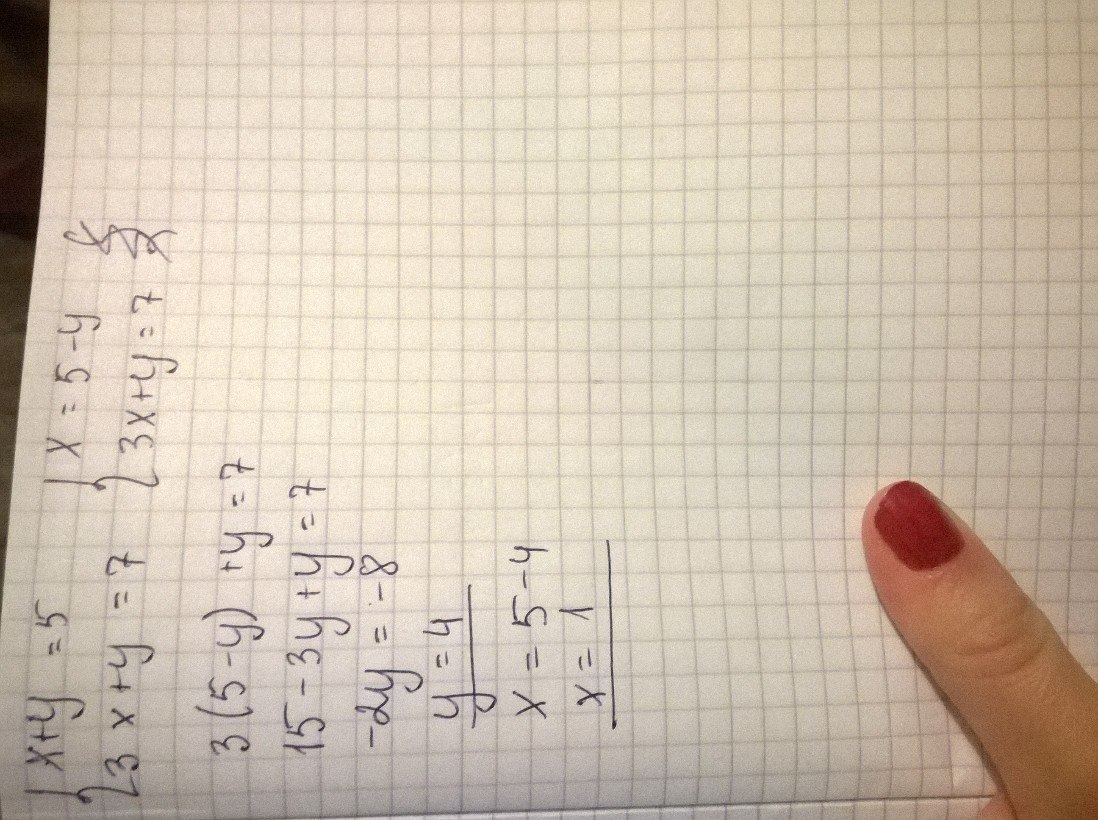 { x+y = 5 { x = 5-y
{ 3x+y = 7 { 3x+y = 7
3(5-y) +y = 7
15 - 3y + y = 7
-2y = -8
y = 4
x = 5-4
x = 1